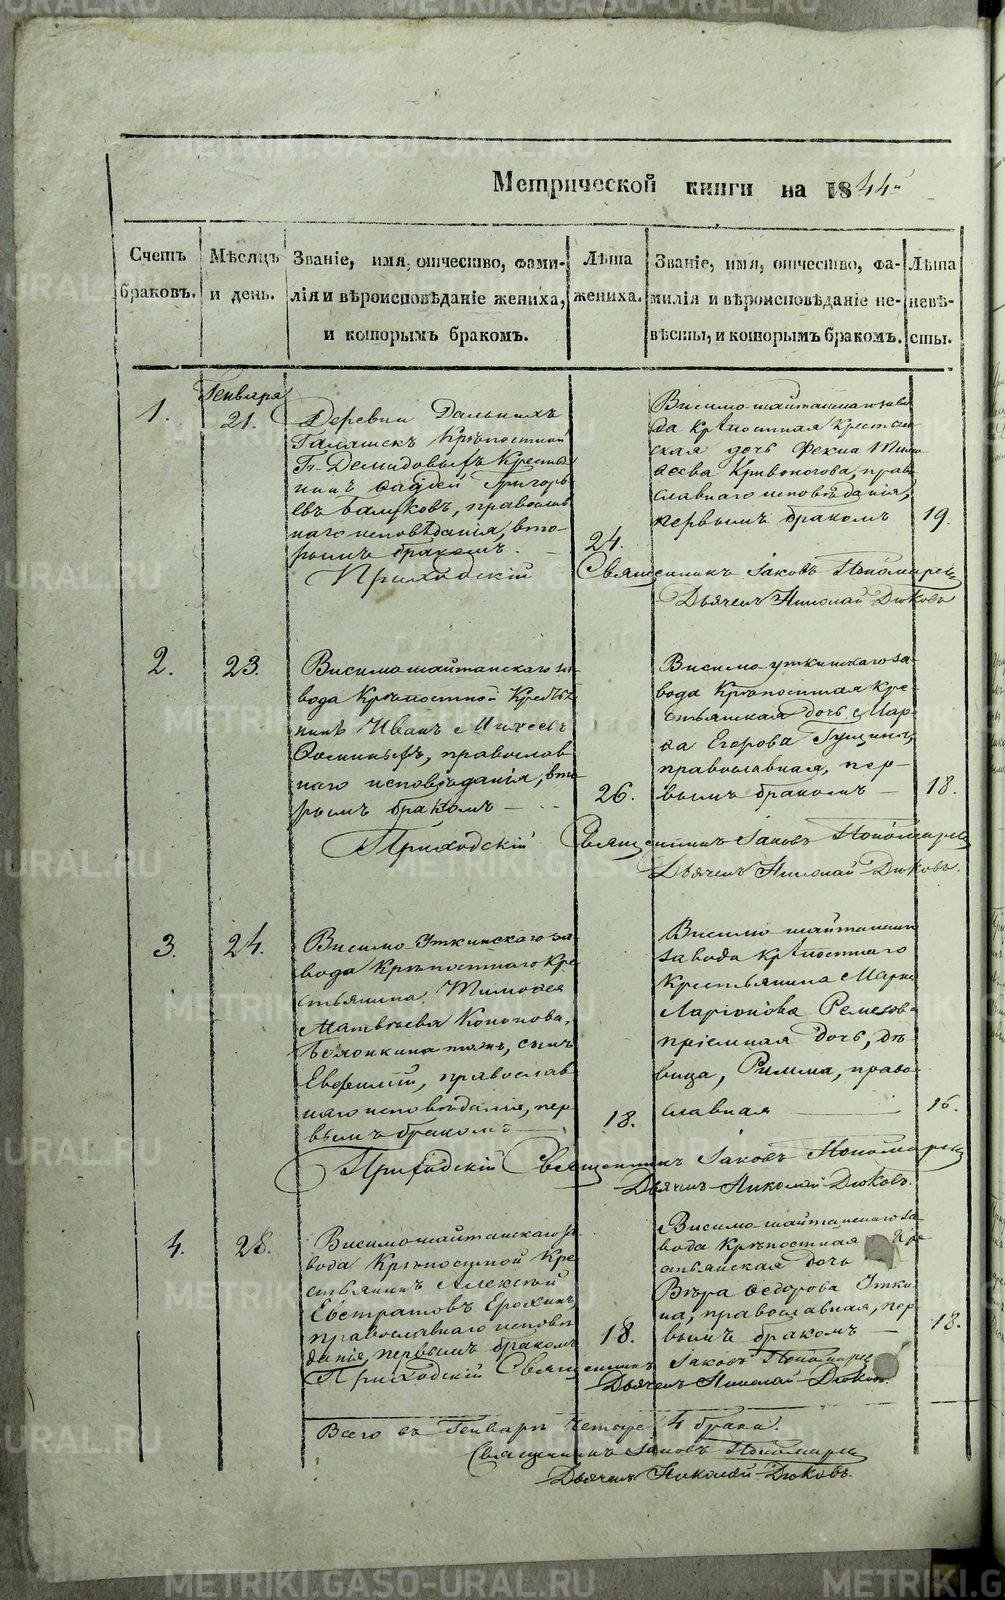 Метрической книги на 1844й
Счетъ браковъ.
Мѣсяцъ и день.
Званіе, имя, отчество, фами-
лія и вѣроисповѣданіе жениха,
и которымъ бракомъ.
Лѣта жениха.
Званіе, имя, отчество, фа-
милія и вѣроисповѣданіе не-
вѣсты, и которымъ бракомъ.
Лѣта невѣ-
сты.
1.
Генваря
21.
Деревни Дальнихъ
Галяшекъ Крѣпостный
Гг. Демидовыхъ Крестья
нинъ Ѳаддей Григорь
евъ, православ
наго исповѣданія, вто-
рымъ бракомъ.
24.
Висимо-шайтанскаго заво
да крѣпостная Крестьян
ская дочь Ѳекла Тимо
ѳеева Кривоногова, право
славнаго исповѣданія,
первымъ бракомъ
19.
Приходскій Священникъ Іаковъ Пономаревъ
Дьячекъ Николай Дюковъ
2.
23.
Висимо шайтанскаго за
вода Крѣпостной Кресть
нинъ Иванъ Михеевъ
православ
наго исповѣданія, вто
рымъ бракомъ
26.
Висимо-уткинскаго за-
вода Крѣпостная Кре-
стьянская дочь Мар
ѳа Егорова Гущина,
православная, пер-
вымъ бракомъ
18.
Приходскій Священникъ Іаковъ Пономаревъ
Дьячекъ Николай Дюковъ.
3.
24.
Висимо Уткинскаго за
вода Крѣпостнаго Кре
стьянина Тимоѳея
Матвѣева Кононова,
тожъ, сынъ
Евфимій, православ
наго исповѣданія, пер
вымъ бракомъ
18.
Висимо шайтанскаго
завода крѣпостнаго
Крестьянина Марка
Ларіонова Ремезова
пріемная дочь, дѣ
вица, Римма, право
славная
16.
Приходскій Священникъ Іаковъ Пономаревъ
Дьячекъ Николай Дюковъ.
4.
28.
Висимошайтанскаго за
вода Крѣпостной Кре
стьянинъ Алексѣй
Евстратовъ Ерохинъ,
православнаго исповѣ
данія, первымъ бракомъ
18.
Висимо-шайтанскаго за-
вода Крѣпостная Кре
стьянская дочь
Вѣра Ѳедорова Утки
на, православная, пер
вымъ бракомъ
18.
Приходскій Священникъ Іаковъ Пономаревъ
Дьячекъ Николай Дюковъ.
Всего въ Генварѣ Четыре 4 брака.
Священникъ Іаковъ Пономаревъ
Дьячекъ Николай Дюковъ.
METRIKI.GASO-URAL.RU